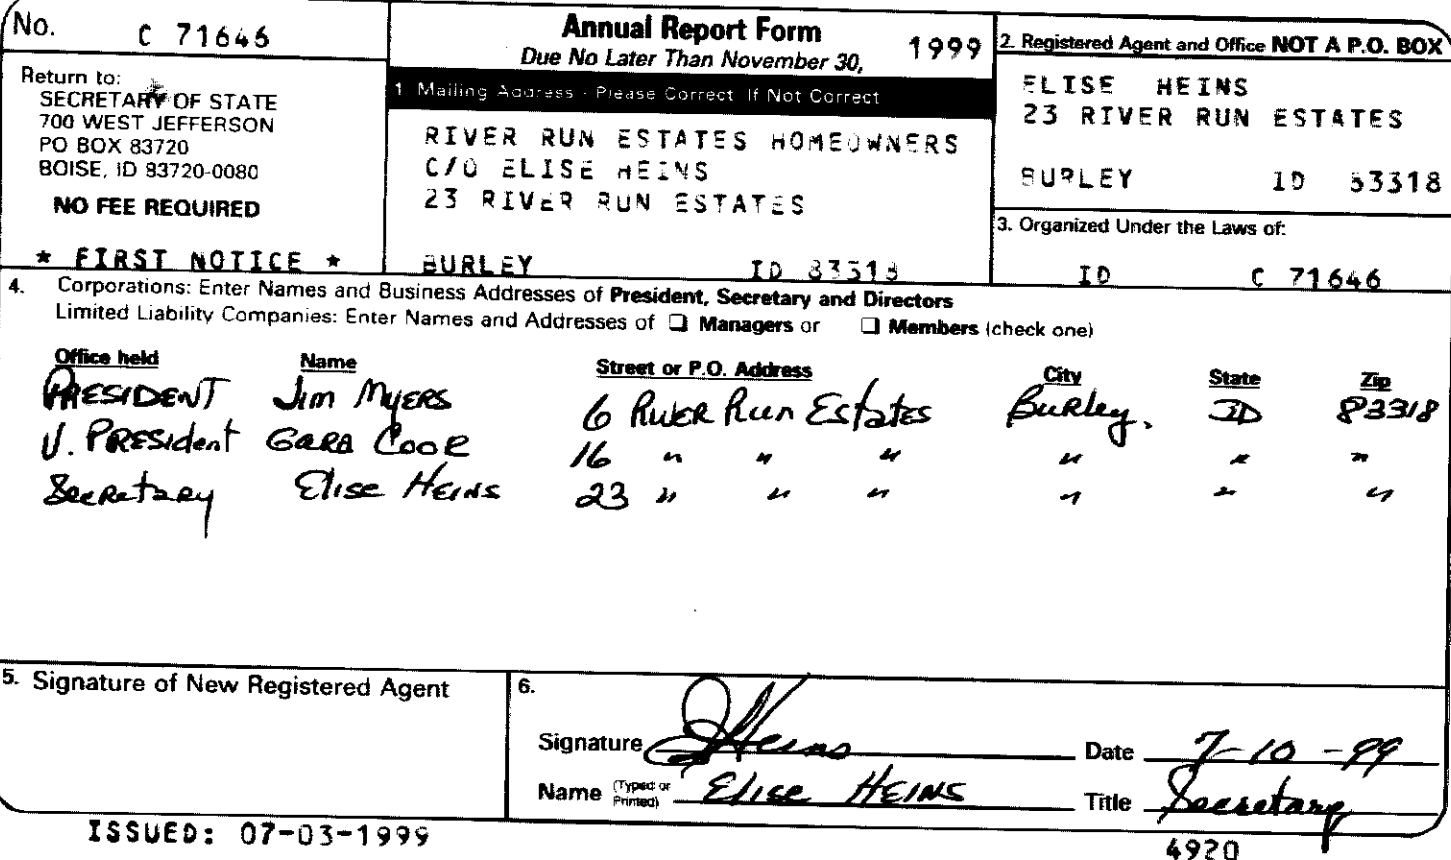 No. C 71646
Return to:
SECRETARY OF STATE
700 WEST JEFFERSON
PO BOX 83720
BOISE, ID 83720-0080
NO FEE REQUIRED
* FIRST NOTICE *
Annual Report Form
Due No Later Than November 30, 1999
1 Mailing Address - Please Correct If Not Correct
RIVER RUN ESTATES HOMEOWNERS
C/O ELISE HEINS
23 RIVER RUN ESTATES
BURLEY ID 83318
2. Registered Agent and Office NOT A P.O. BOX
ELISE HEINS
23 RIVER RUN ESTATES
BURLEY ID 83318
3. Organized Under the Laws of:
ID C 71646
4. Corporations: Enter Names and Business Addresses of President, Secretary and Directors
Limited Liability Companies: Enter Names and Addresses of ❑ Managers or ❑ Members (check one)
Office held Name Street or P.O. Address City State Zip
PRESIDENT Jim Myers 6 River Run Estates Burley, ID 83318
V. President Cook 16 " " " " " "
Secretary Elise Heins 23 " " " " " "
5. Signature of New Registered Agent
6.
Signature Heins Date 7-10-99
Name (Typed or Printed) Elise Heins Title Secretary
ISSUED: 07-03-1999
4920